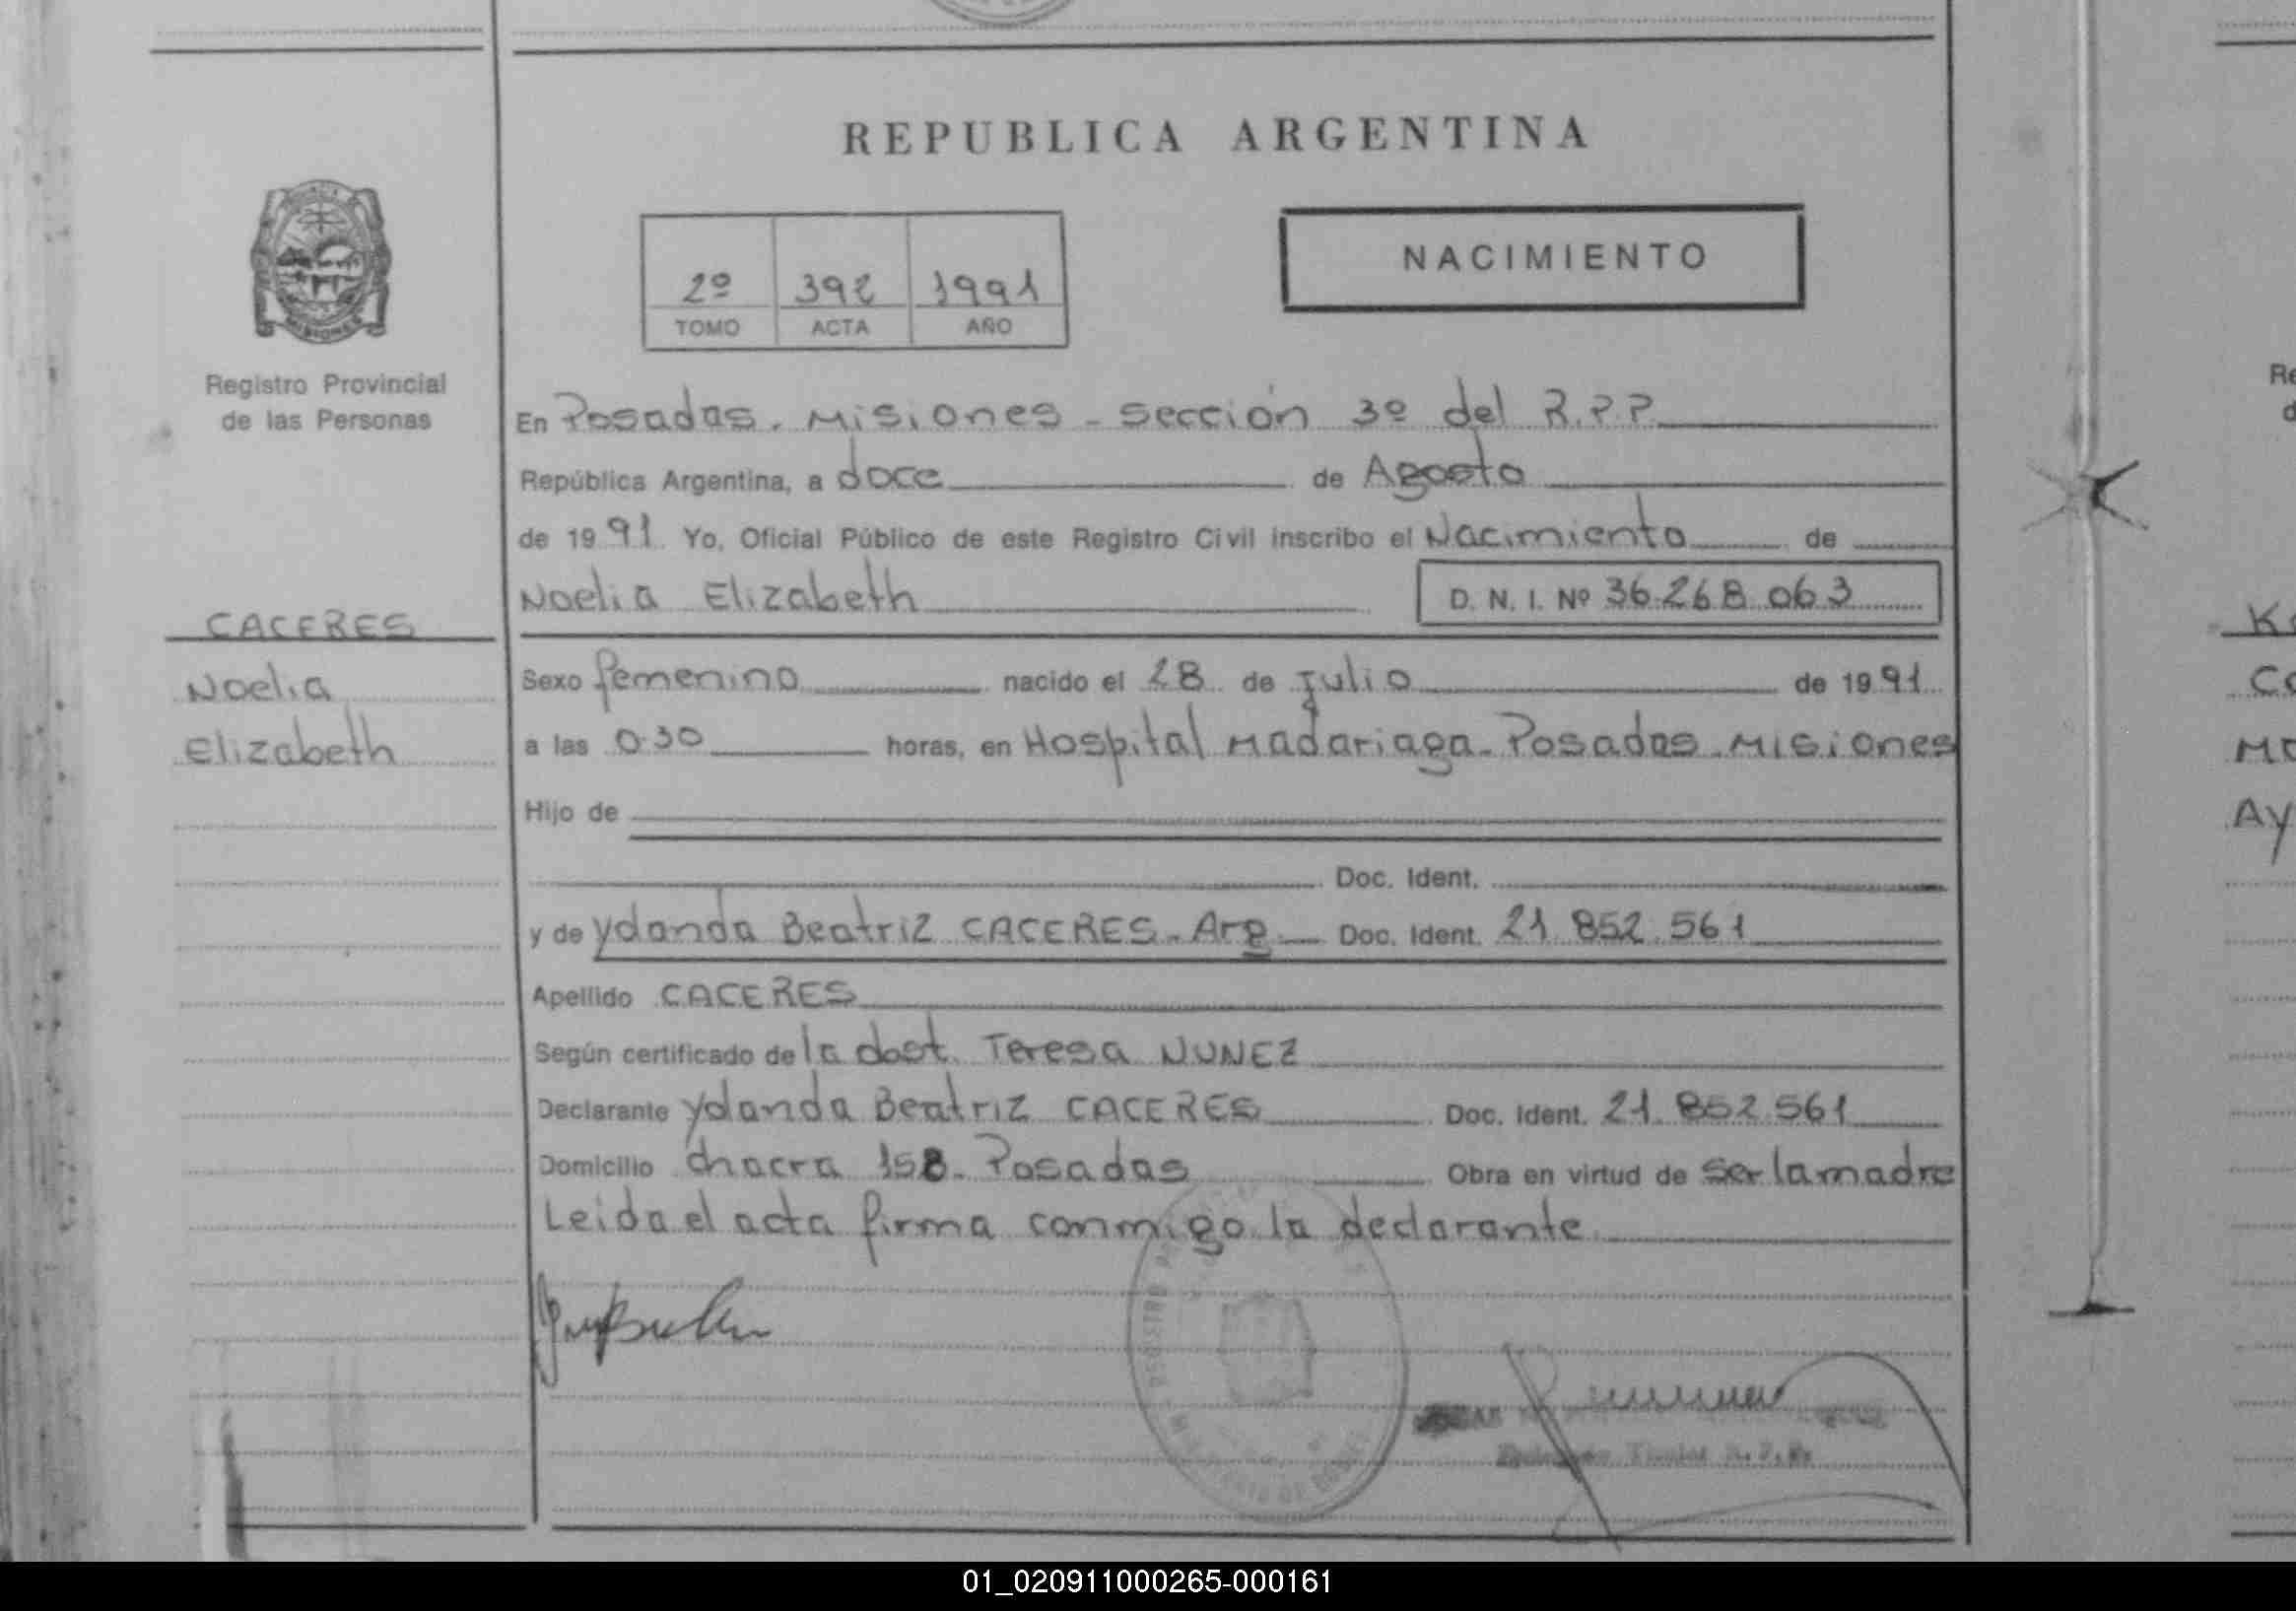 REPUBLICA ARGENTINA
NACIMIENTO
2º 392 1991
TOMO ACTA AÑO
MISIONES
Registro Provincial
de las Personas
CACERES
Noelia
Elizabeth
En Posadas. Misiones - sección 3º del R.P.P.
República Argentina, a doce de Agosto
de 1991 Yo, Oficial Público de este Registro Civil inscribo el Nacimiento de
Noelia Elizabeth D. N. I. Nº 36.268.063
Sexo femenino nacido el 28 de julio de 1991
a las 0.30 horas, en Hospital Madariaga - Posadas - Misiones
Hijo de
Doc. Ident.
y de Yolanda Beatriz CACERES - Arg. Doc. Ident. 21.852.561
Apellido CACERES
Según certificado de la obst. Teresa NUNEZ
Declarante Yolanda Beatriz CACERES Doc. Ident. 21.852.561
Domicilio chacra 158 - Posadas Obra en virtud de ser la madre
Leida el acta firma conmigo la declarante
Re
d
K
Co
Mo
Ay
01_020911000265-000161